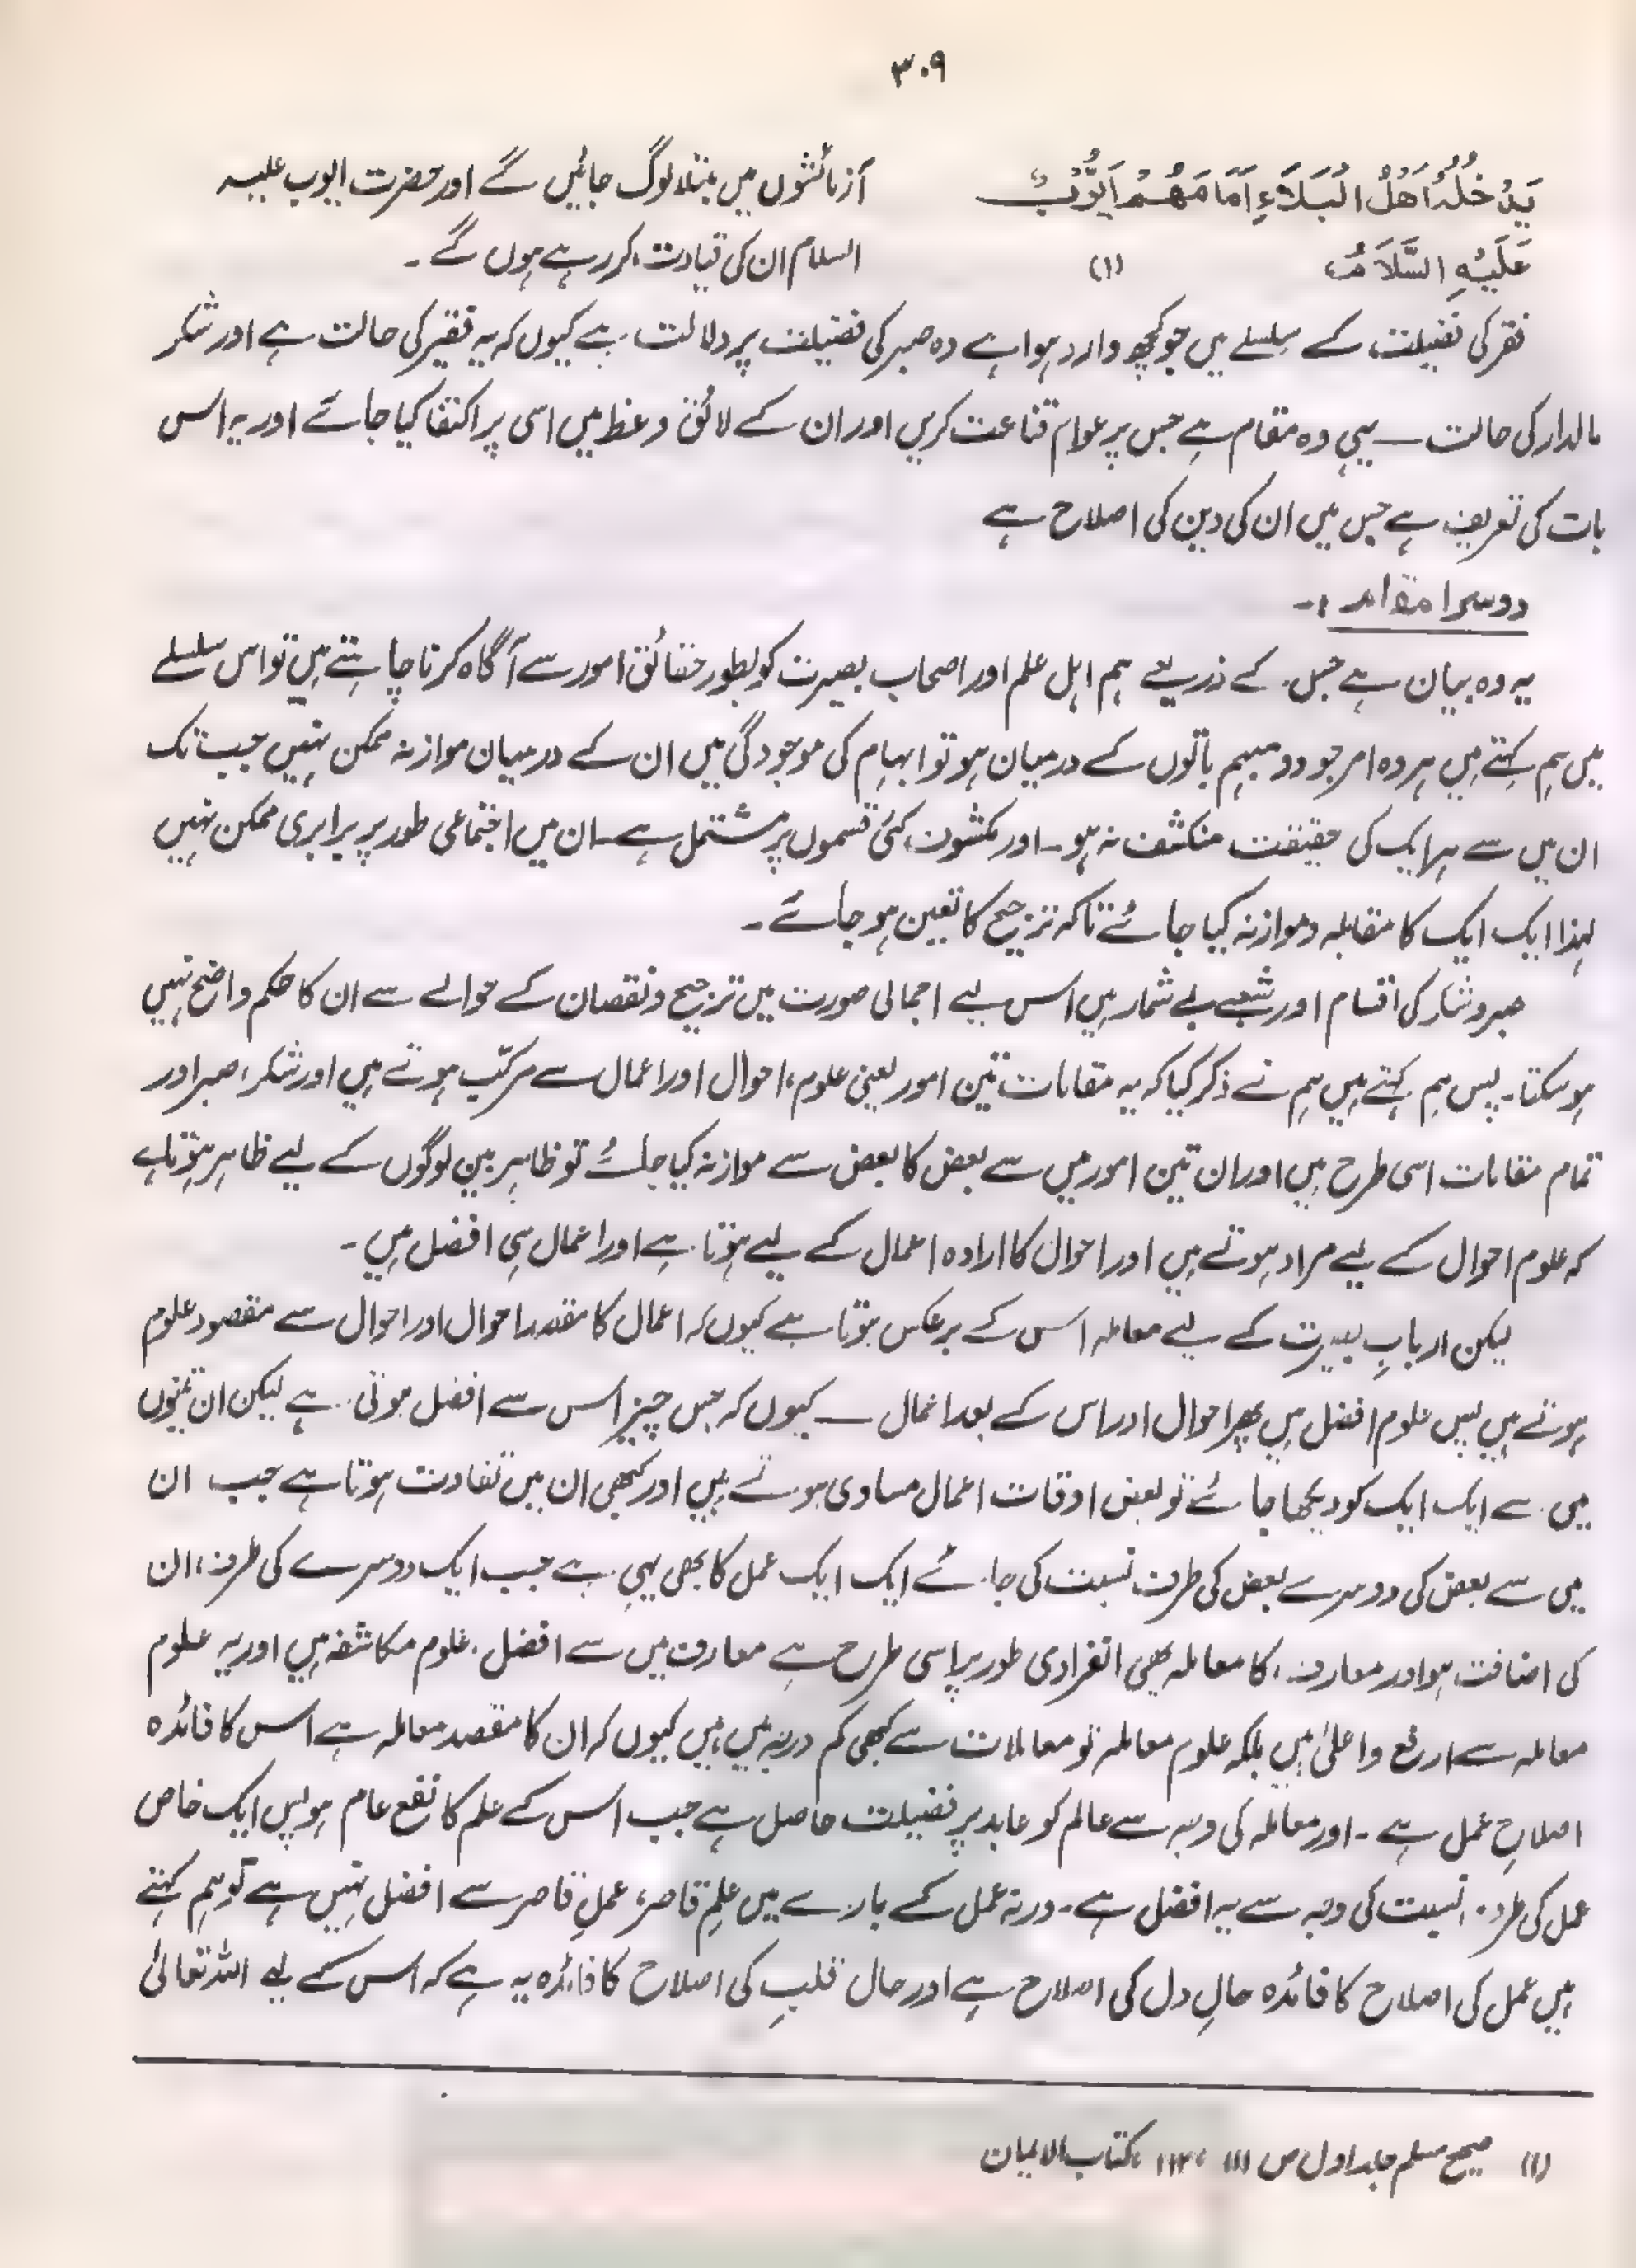 ۳۰۹
يَدْخُلُهٗ اَهْلُ الْبَلَاءِ اَمَامَهُمْ اَيُّوْبُ
عَلَيْهِ السَّلَامُ (۱)
آزمائشوں میں مبتلا لوگ جائیں گے اور حضرت ایوب علیہ
السلام ان کی قیادت کر رہے ہوں گے۔
فقر کی فضیلت کے سلسلے میں جو کچھ وارد ہوا ہے وہ صبر کی فضیلت پر دلالت ہے کیوں کہ یہ فقیر کی حالت ہے اور شکر
مالدار کی حالت ــ یہی وہ مقام ہے جس پر عوام قناعت کریں اور ان کے لائق وعظ میں اسی پر اکتفا کیا جائے اور یہ اس
بات کی تعریف ہے جس میں ان کی دین کی اصلاح ہے
دوسرا مقام :۔
یہ وہ بیان ہے جس کے ذریعے ہم اہل علم اور اصحاب بصیرت کو بطور حقائق امور سے آگاہ کرنا چاہتے ہیں تو اس سلسلے
میں ہم کہتے ہیں ہر وہ امر جو دو مبہم باتوں کے درمیان ہو تو ابہام کی موجودگی میں ان کے درمیان موازنہ ممکن نہیں جب تک
ان میں سے ہر ایک کی حقیقت منکشف نہ ہو۔ اور مکشوف کئی قسموں پر مشتمل ہے۔ ان میں اجتماعی طور پر برابری ممکن نہیں
لہذا ایک ایک کا مقابلہ و موازنہ کیا جائے تاکہ ترجیح کا تعین ہو جائے۔
صبر و شکر کی اقسام اور شعبے بے شمار ہیں اس لیے اجمالی صورت میں ترجیح و نقصان کے حوالے سے ان کا حکم واضح نہیں
ہو سکتا۔ پس ہم کہتے ہیں ہم نے ذکر کیا کہ یہ مقامات تین امور یعنی علوم، احوال اور اعمال سے مرکّب ہوتے ہیں اور شکر، صبر اور
تمام مقامات اسی طرح ہیں اور ان تین امور میں سے بعض کا بعض سے موازنہ کیا جائے تو ظاہر بین لوگوں کے لیے ظاہر ہوتا ہے
کہ علوم احوال کے لیے مراد ہوتے ہیں اور احوال کا ارادہ اعمال کے لیے ہوتا ہے اور اعمال ہی افضل ہیں۔
لیکن اربابِ بصیرت کے لیے معاملہ اس کے برعکس ہوتا ہے کیوں کہ اعمال کا مقصد احوال اور احوال سے مقصود علوم
ہوتے ہیں پس علوم افضل ہیں پھر احوال اور اس کے بعد اعمال ــ کیوں کہ جس چیز اس سے افضل ہوتی ہے لیکن ان تینوں
میں سے ایک ایک کو دیکھا جائے تو بعض اوقات اعمال مساوی ہوتے ہیں اور کبھی ان میں تفاوت ہوتا ہے جب ان
میں سے بعض کی دوسرے بعض کی طرف نسبت کی جائے ایک ایک عمل کا بھی یہی ہے جب ایک دوسرے کی طرف، ان
کی اضافت ہو اور معارف کا معاملہ بھی انفرادی طور پر اسی طرح ہے معارف میں سے افضل علوم مکاشفہ ہیں اور یہ علوم
معاملہ سے ارفع و اعلیٰ ہیں بلکہ علوم معاملہ تو معاملات سے کبھی کم درجہ میں ہیں کیوں کہ ان کا مقصد معاملہ ہے اس کا فائدہ
اصلاحِ عمل ہے۔ اور معاملہ کی وجہ سے عالم کو عابد پر فضیلت حاصل ہے جب اس کے علم کا نفع عام ہو پس ایک خاص
عمل کی طرف نسبت کی وجہ سے یہ افضل ہے۔ ورنہ عمل کے بارے میں علمِ قاصر، عملِ قاصر سے افضل نہیں ہے تو ہم کہتے
ہیں عمل کی اصلاح کا فائدہ حالِ دل کی اصلاح ہے اور حال قلبِ کی اصلاح کا فائدہ یہ ہے کہ اس کے لیے اللہ تعالیٰ
(۱) صحیح مسلم جلد اول ص ۱۱۱ کتاب الایمان